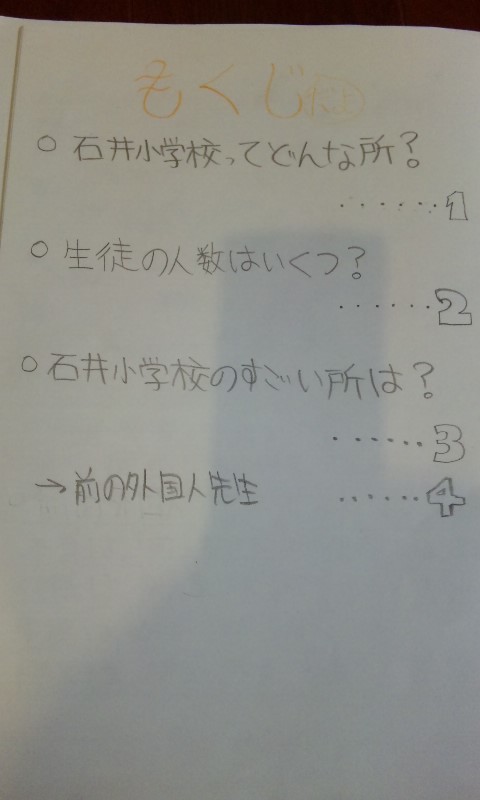 もくじ
○ 石井小学校ってどんな所?
......1
○ 生徒の人数はいくつ?
......2
○ 石井小学校のすごい所は?
......3
→前の外国人先生 ......4